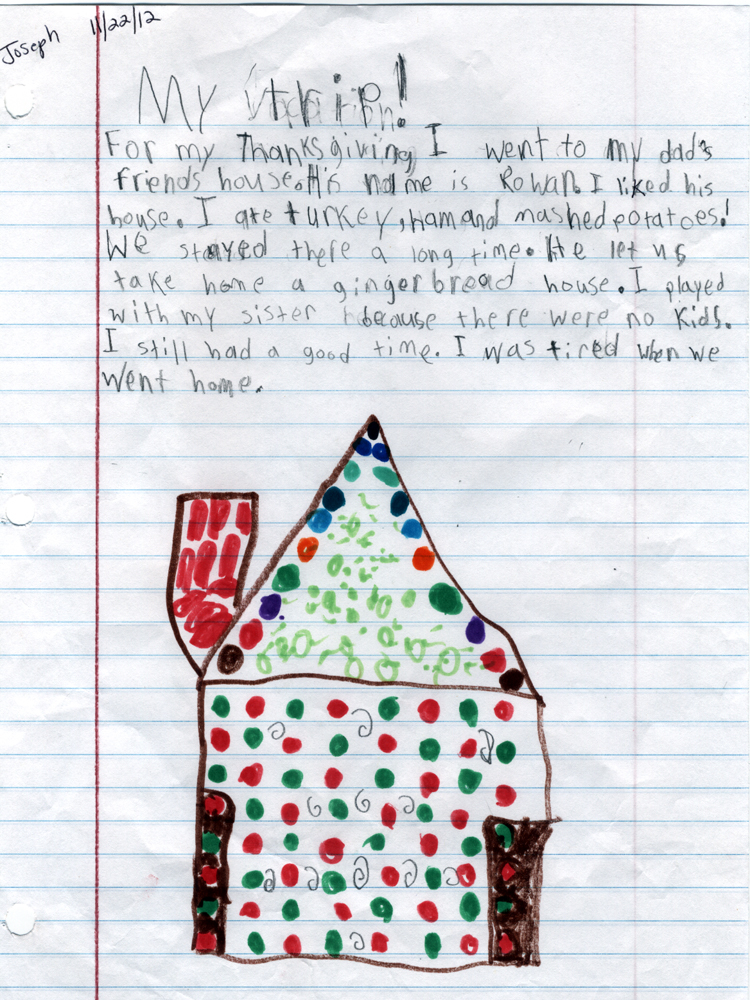 Joseph 11/22/12
My trip!
For my Thanksgiving, I went to my dad's
friends house. His name is Rowan. I liked his
house. I ate turkey, ham and mashed potatoes!
We stayed there a long time. He let us
take home a gingerbread house. I played
with my sister because there were no kids.
I still had a good time. I was tired when we
went home.